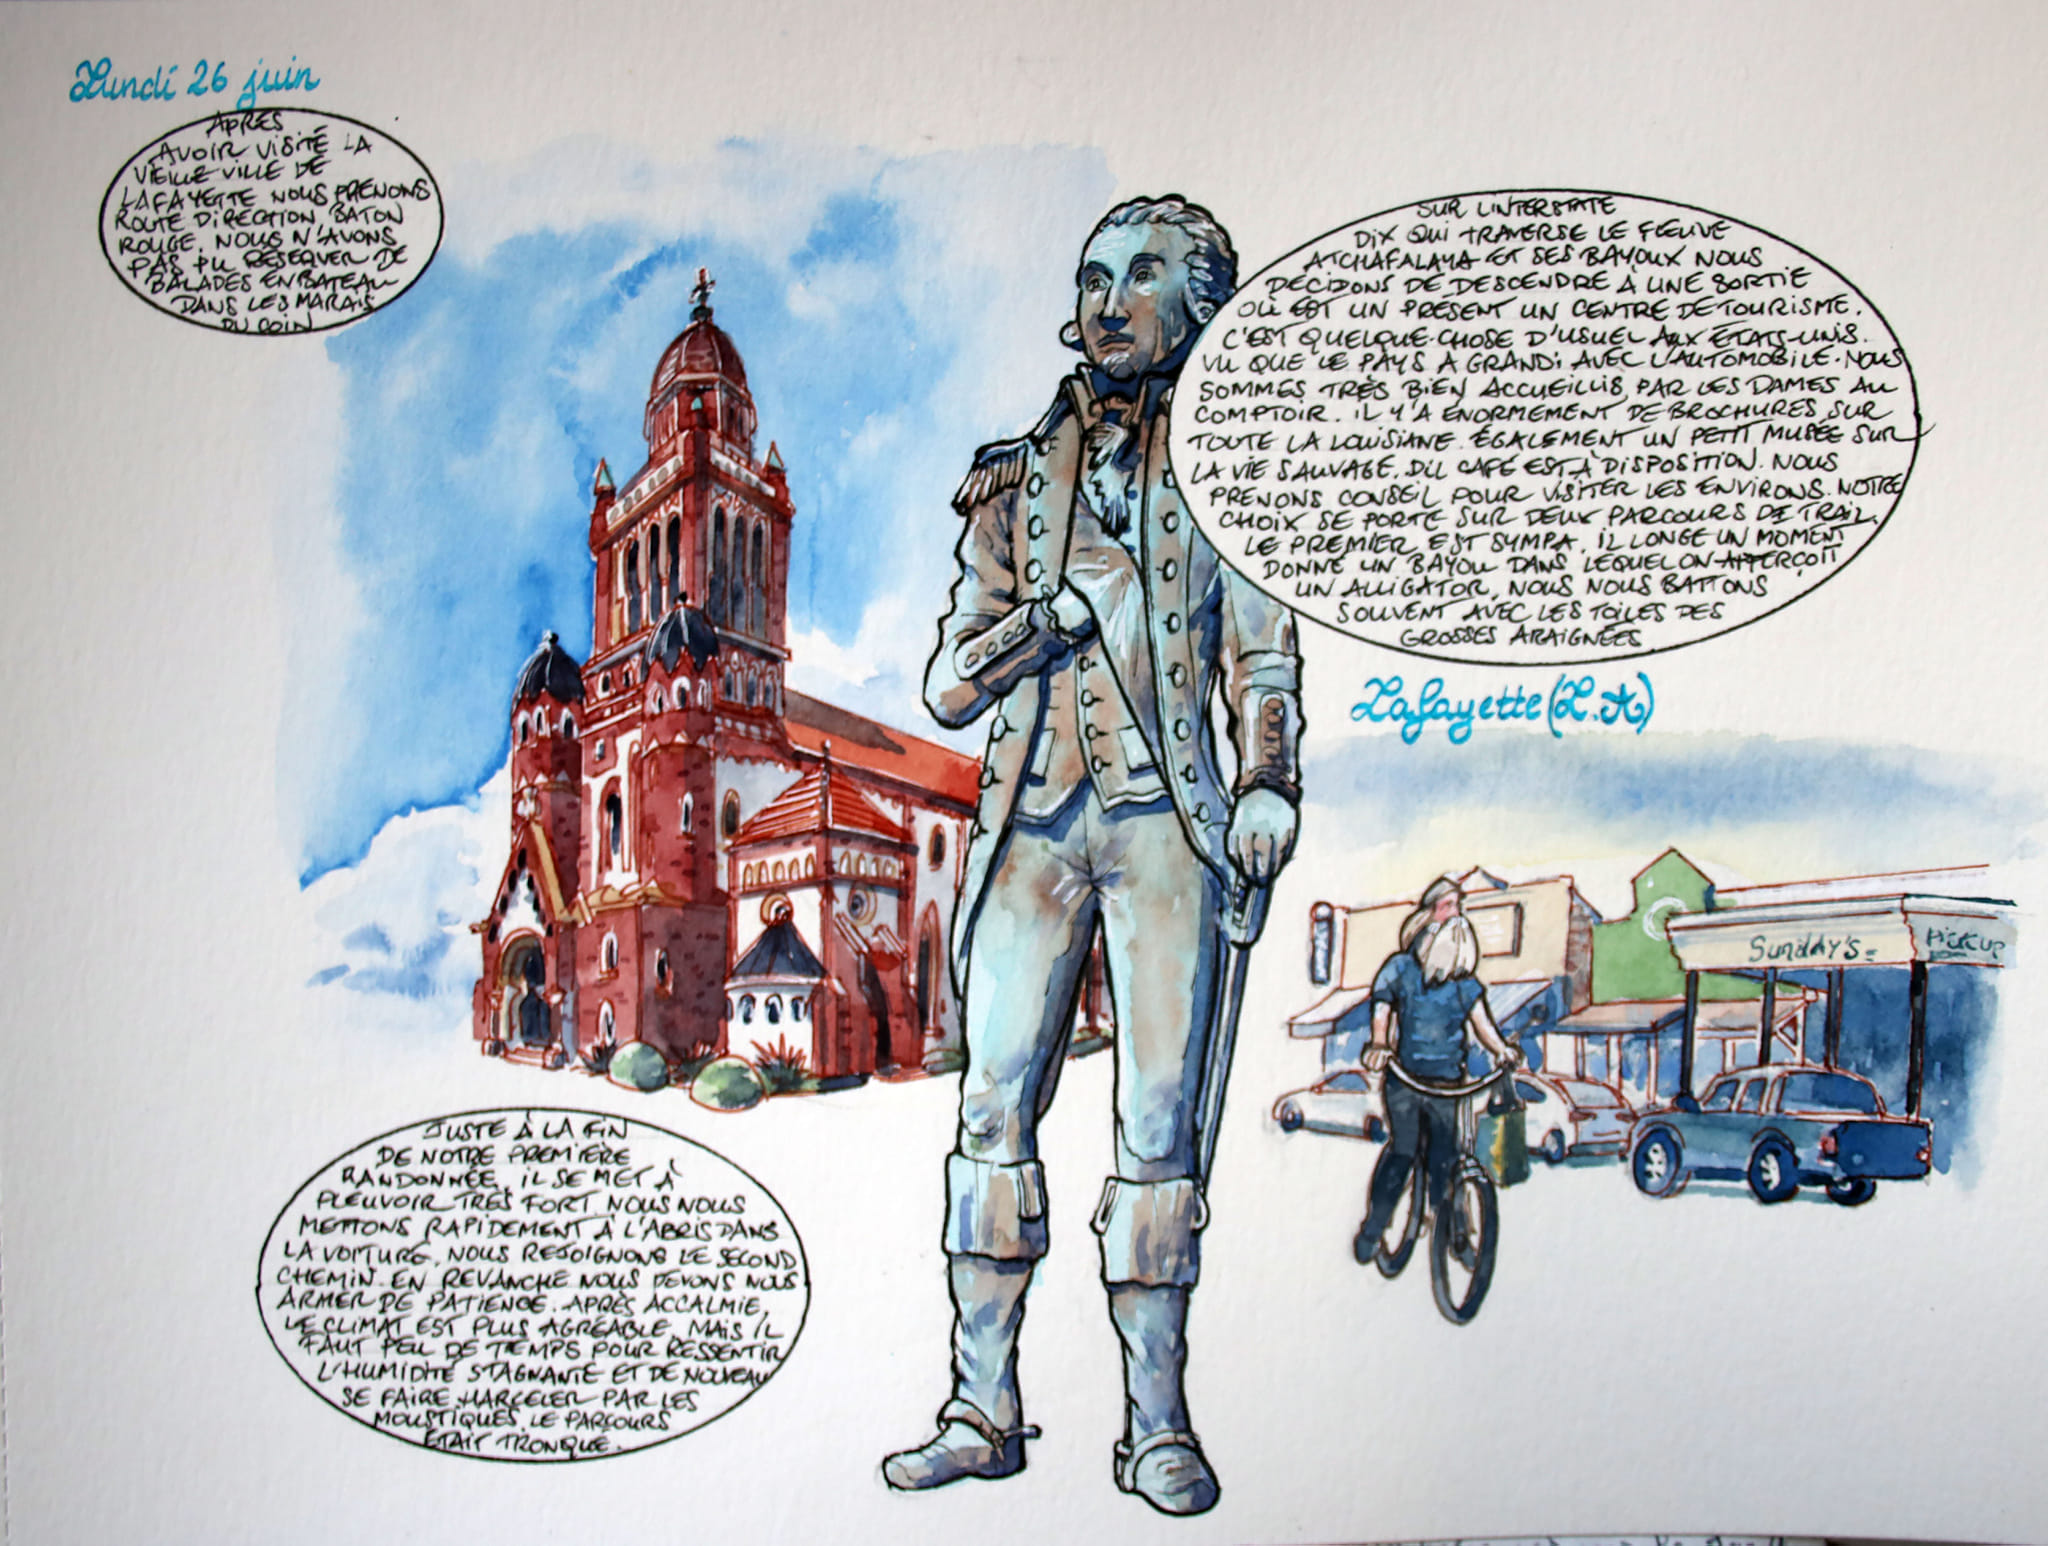 Lundi 26 juin
APRÈS
AVOIR VISITÉ LA
VIEILLE VILLE DE
LAFAYETTE NOUS PRENONS
ROUTE DIRECTION BATON
ROUGE. NOUS N'AVONS
PAS PU RÉSERVER DE
BALADES EN BATEAU
DANS LES MARAIS
DU COIN
SUR L'INTERSTATE
DIX QUI TRAVERSE LE FLEUVE
ATCHAFALAYA ET SES BAYOUX NOUS
DÉCIDONS DE DESCENDRE À UNE SORTIE
OÙ EST UN PRÉSENT UN CENTRE DE TOURISME.
C'EST QUELQUE CHOSE D'USUEL AUX ÉTATS-UNIS.
VU QUE LE PAYS A GRANDI AVEC L'AUTOMOBILE. NOUS
SOMMES TRÈS BIEN ACCUEILLIS PAR LES DAMES AU
COMPTOIR. IL Y'A ÉNORMEMENT DE BROCHURES SUR
TOUTE LA LOUISIANE. ÉGALEMENT UN PETIT MUSÉE SUR
LA VIE SAUVAGE. DU CAFÉ EST À DISPOSITION. NOUS
PRENONS CONSEIL POUR VISITER LES ENVIRONS. NOTRE
CHOIX SE PORTE SUR DEUX PARCOURS DE TRAIL.
LE PREMIER EST SYMPA. IL LONGE UN MOMENT
DONNÉ UN BAYOU DANS LEQUEL ON APPERÇOIT
UN ALLIGATOR, NOUS NOUS BATTONS
SOUVENT AVEC LES TOILES DES
GROSSES ARAIGNÉES
Lafayette (L.A)
SUNDAY'S
PICK UP
JUSTE À LA FIN
DE NOTRE PREMIÈRE
RANDONNÉE, IL SE MET À
PLEUVOIR TRÈS FORT. NOUS NOUS
METTONS RAPIDEMENT À L'ABRIS DANS
LA VOITURE. NOUS REJOIGNONS LE SECOND
CHEMIN. EN REVANCHE NOUS DEVONS NOUS
ARMER DE PATIENCE. APRÈS ACCALMIE,
LE CLIMAT EST PLUS AGRÉABLE. MAIS IL
FAUT PEU DE TEMPS POUR RESSENTIR
L'HUMIDITÉ STAGNANTE ET DE NOUVEAU
SE FAIRE HARCELER PAR LES
MOUSTIQUES. LE PARCOURS
ÉTAIT TRONQUÉ.